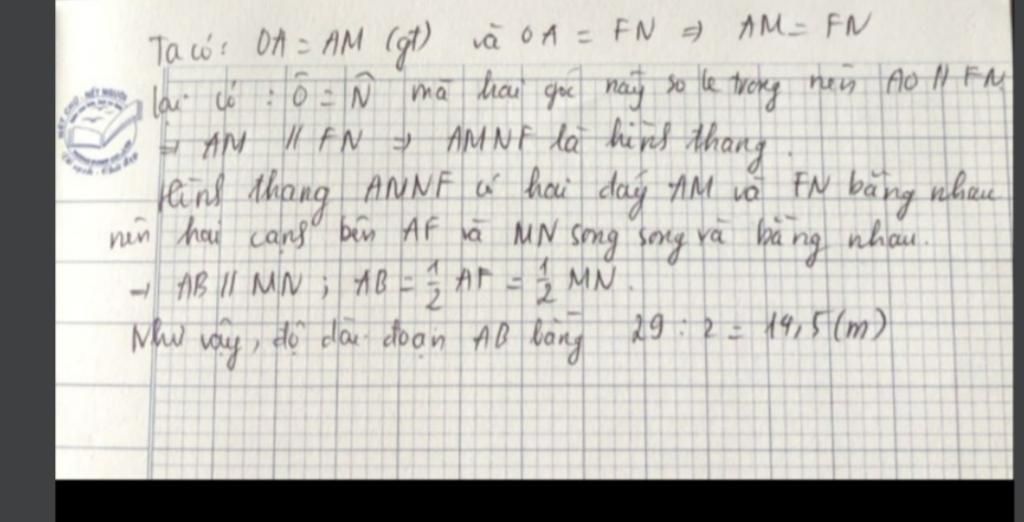 Ta có: OA = AM (gt) và OA = FN ⇒ AM = FN
lại có : Ô = N̂ mà hai góc này so le trong nên AO // FN
→ AM // FN ⇒ AMNF là hình thang.
Hình thang AMNF có hai đáy AM và FN bằng nhau
nên hai cạnh bên AF và MN song song và bằng nhau.
→ AB // MN ; AB = 1/2 AF = 1/2 MN.
Như vậy, độ dài đoạn AB bằng 29 : 2 = 14,5 (m)